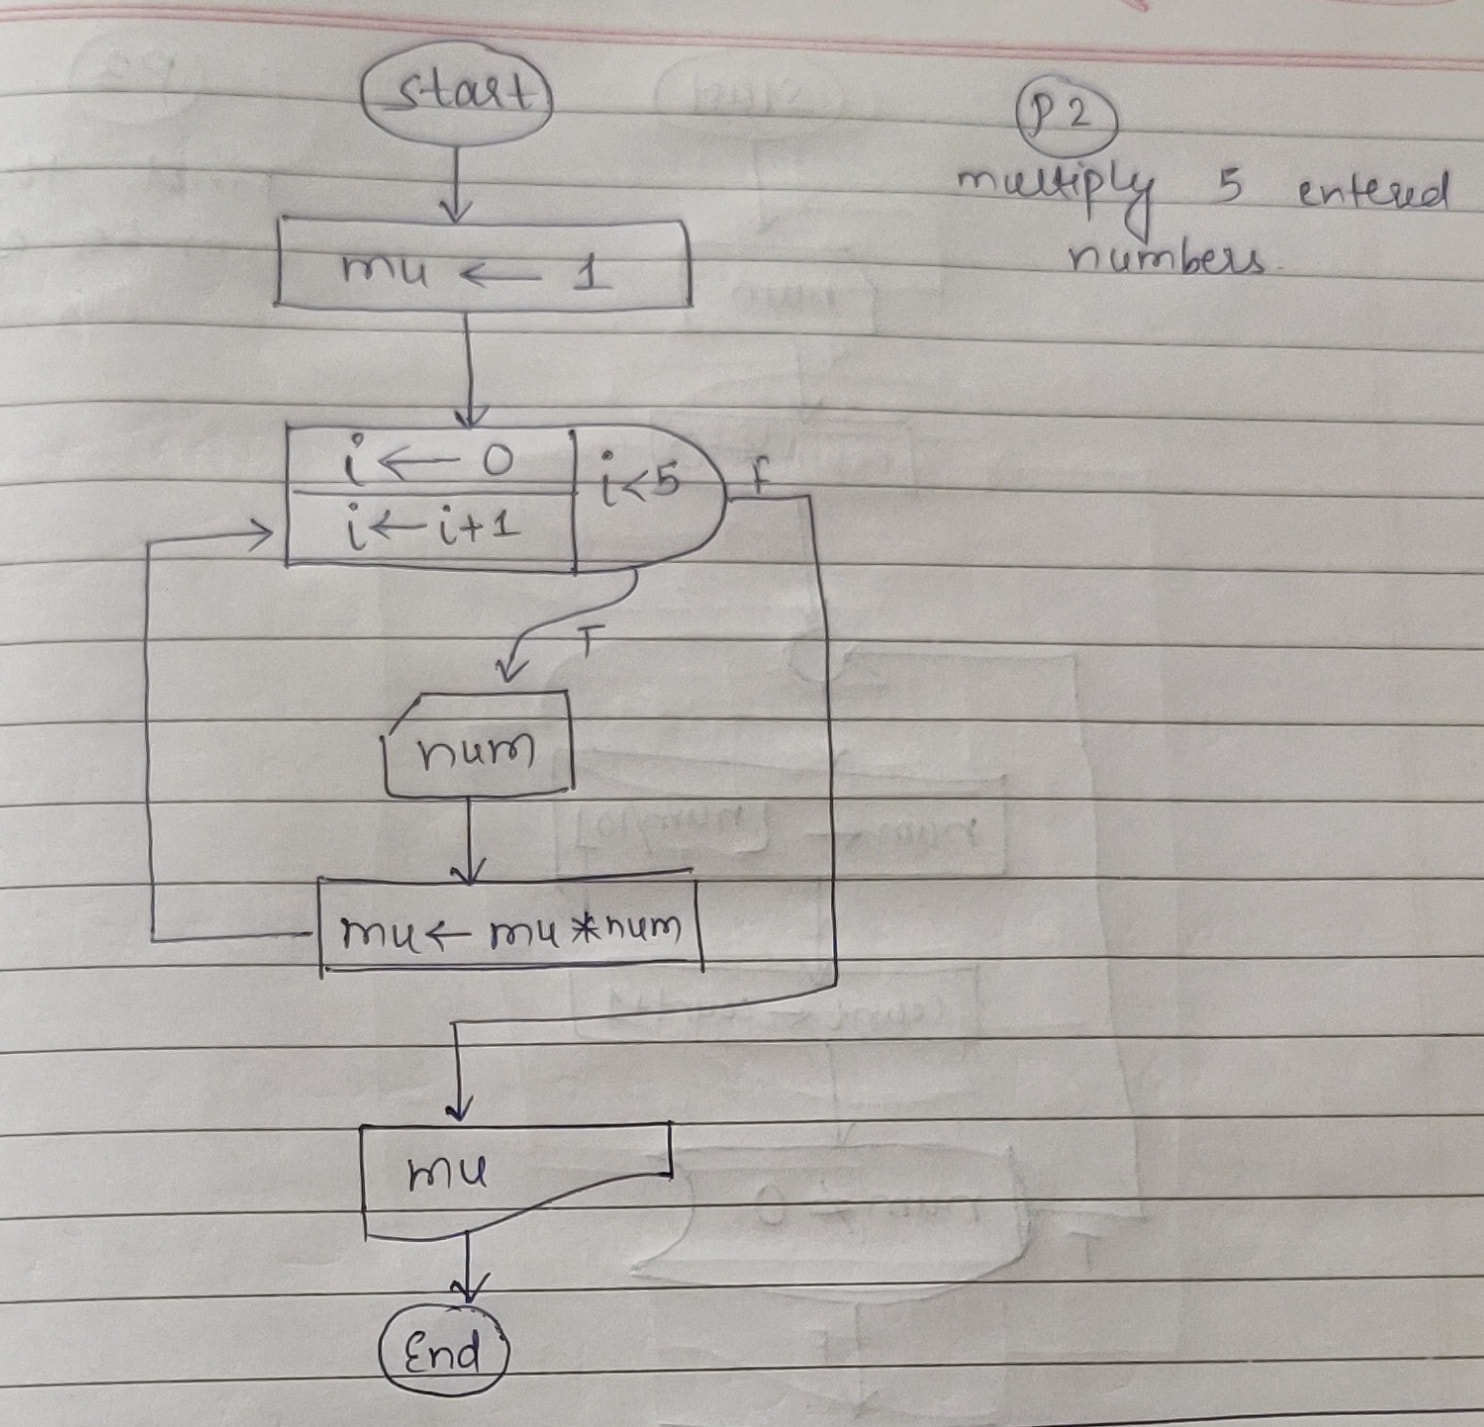 start
P2
multiply 5 entered
numbers.
mu ← 1
i ← 0
i ← i+1
i<5
F
T
num
mu ← mu * num
mu
End